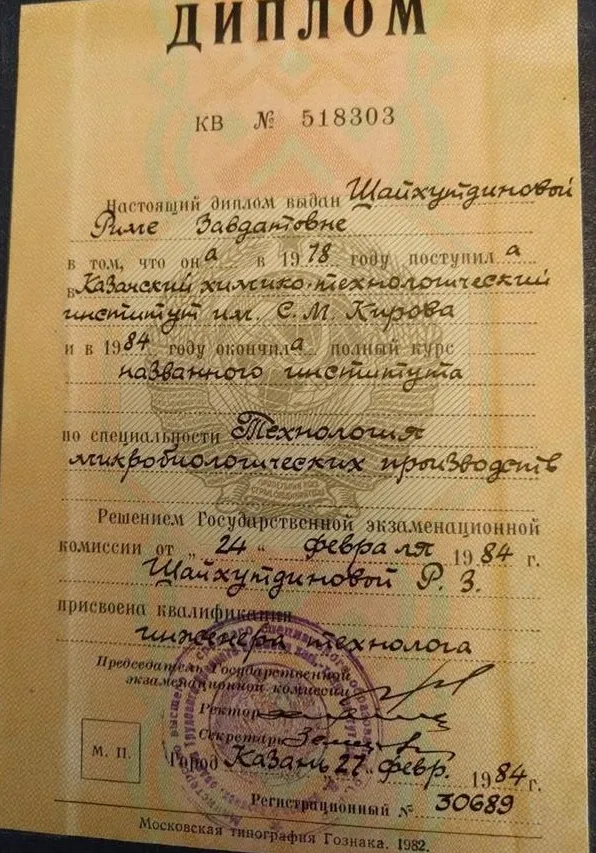 ДИПЛОМ
КВ № 518303
Настоящий диплом выдан Шайхутдиновой
Риме Завдатовне
в том, что она в 1978 году поступила
в Казанский химико-технологический
институт им. С. М. Кирова
и в 1984 году окончила полный курс
названного института
по специальности Технология
микробиологических производств
Решением Государственной экзаменационной
комиссии от „24“ февраля 1984 г.
Шайхутдиновой Р. З.
присвоена квалификация
инженера технолога
Председатель Государственной
экзаменационной комиссии
Ректор
Секретарь
М. П.
Город Казань 27 февр. 1984 г.
Регистрационный № 30689
Московская типография Гознака. 1982.